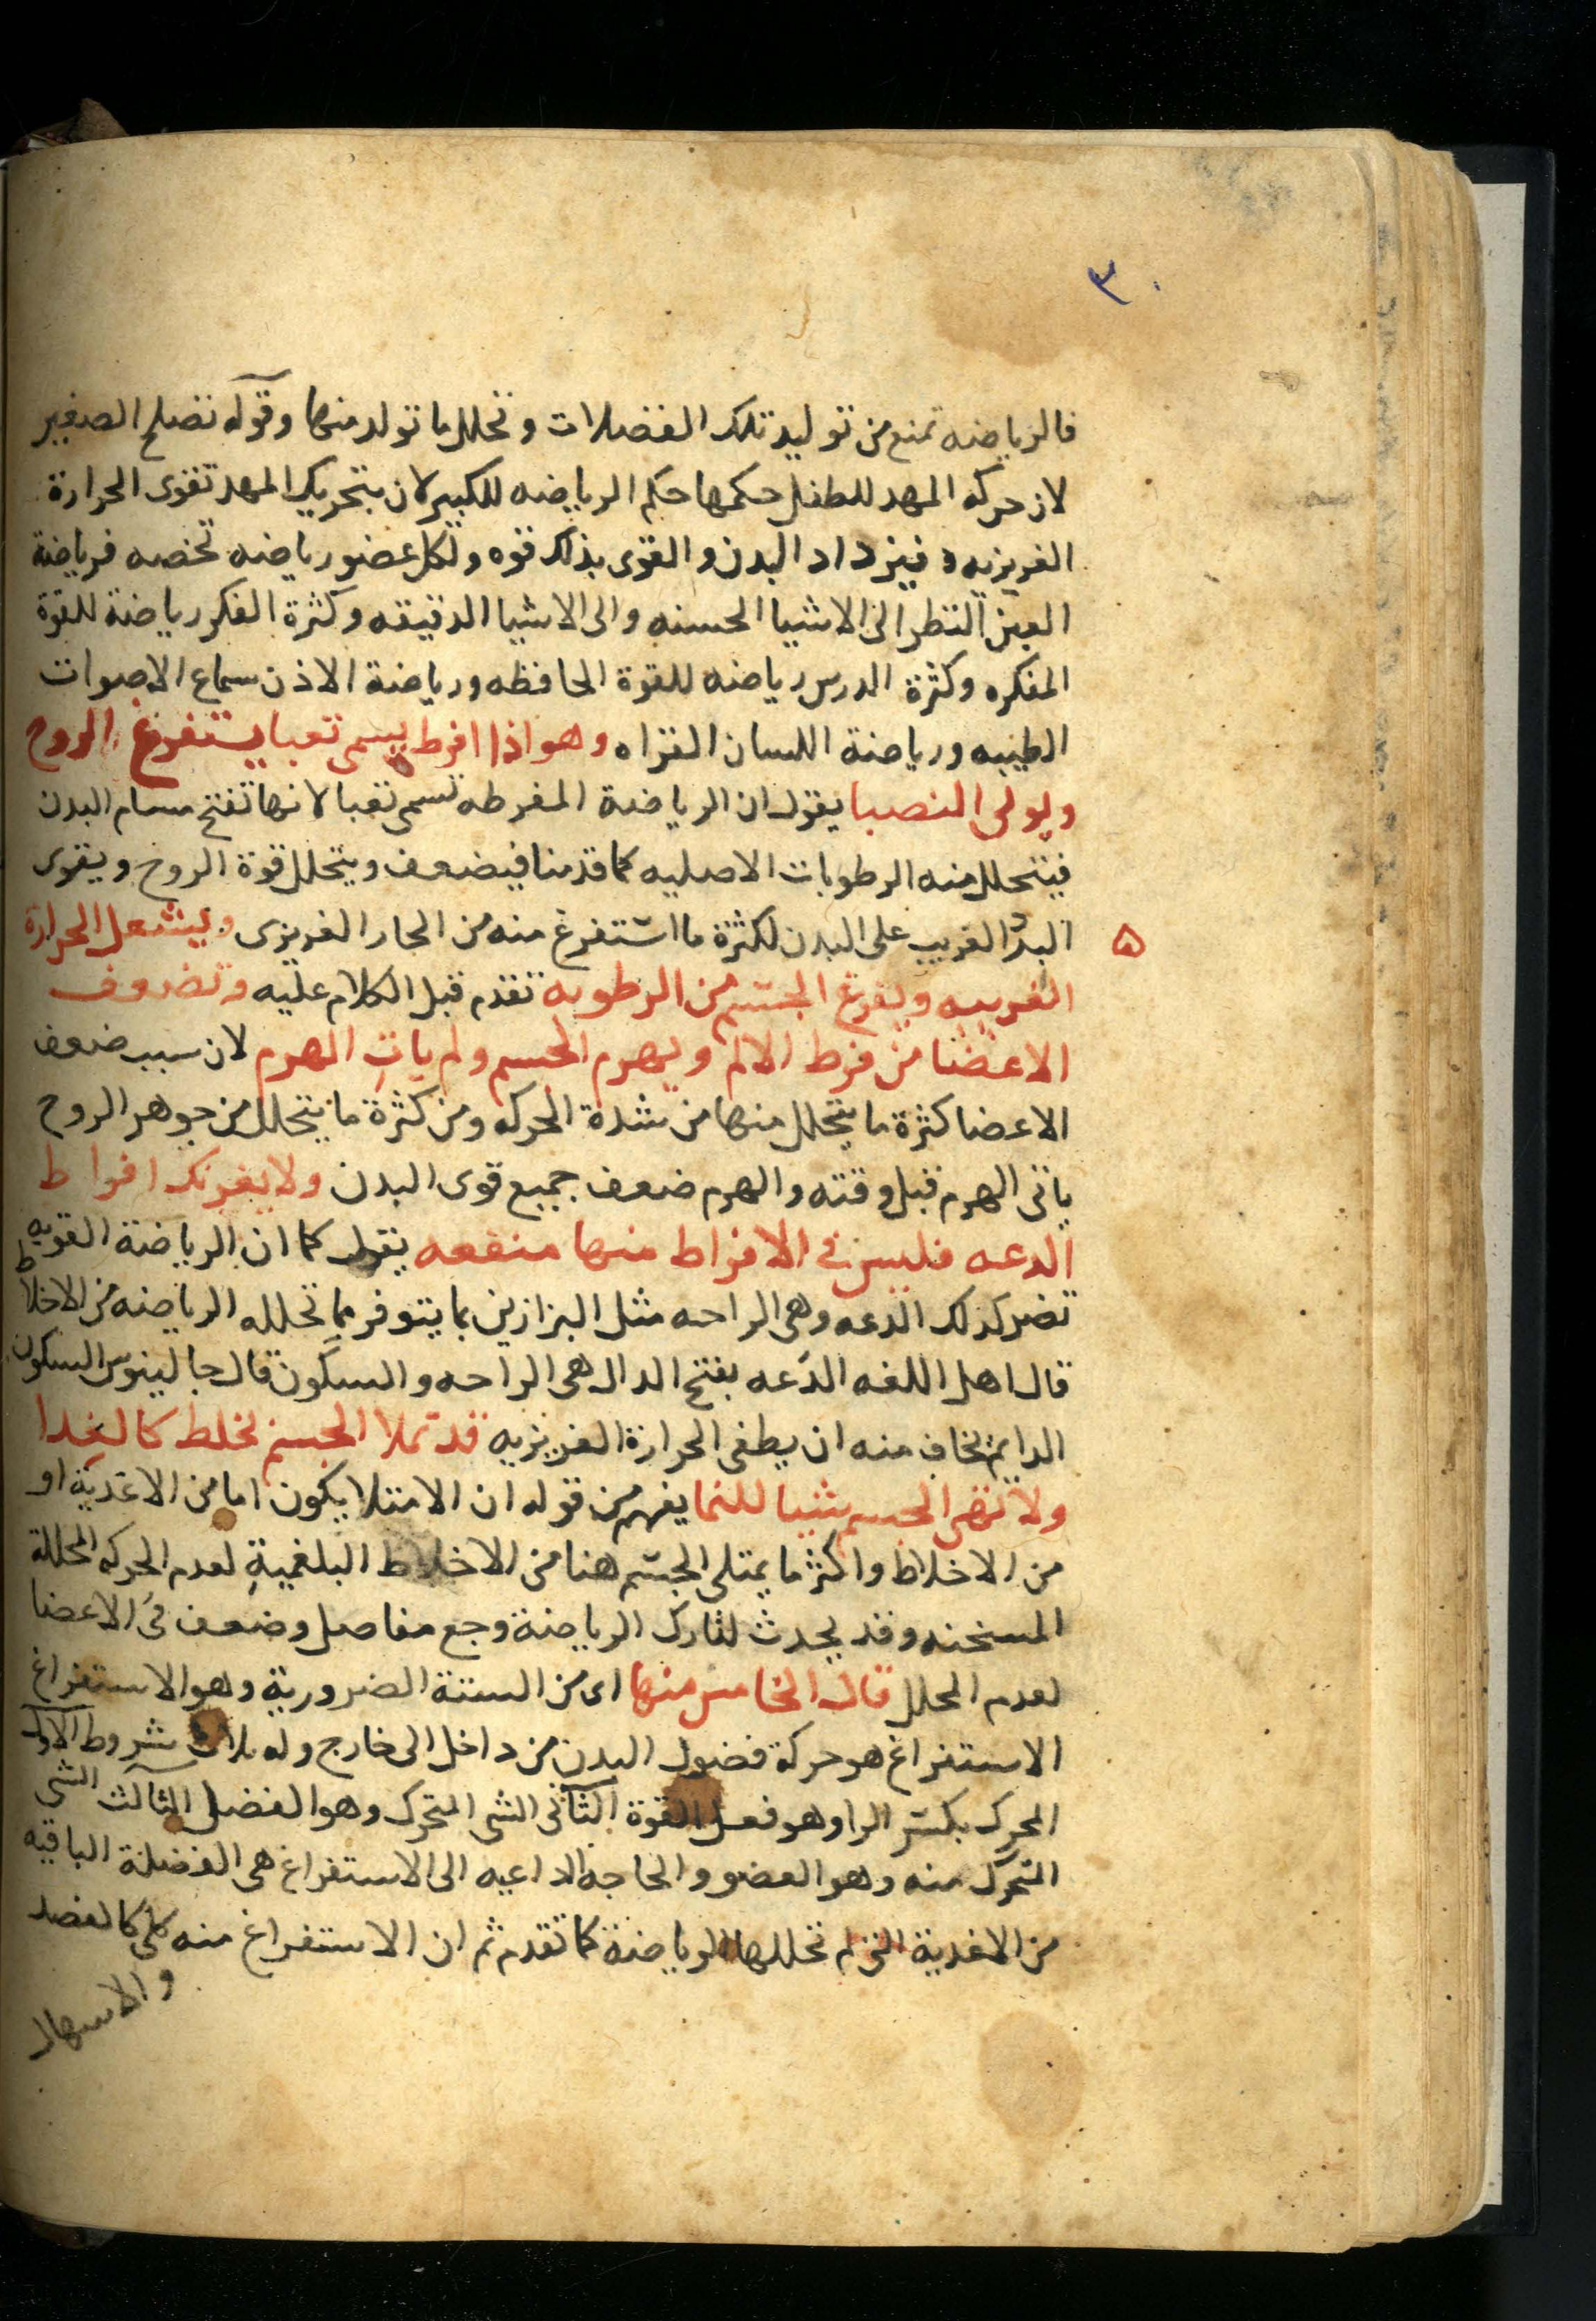 ٣٠
فالرياضه تمنع من توليد تلك الفضلات وتحلل ما تولد منها وقوله تصلح الصغير
لان حركه المهد للطفل حكمها حكم الرياضه للكبير لان بتحريك المهد تقوى الحرارة
الغريزيه فيزداد البدن والقوى بذلك قوه ولكل عضو رياضه تخصه فرياضة
العين النظر الى الاشيا الحسنه والى الاشيا الدقيقه وكثرة الفكر رياضة للقوة
المفكره وكثرة الدرس رياضه للقوة الحافظه ورياضة الاذن سماع الاصوات
الطيبه ورياضة اللسان القراه وهو اذا افرط يسمى تعبا يستفرغ الروح
ويولى النصبا يقول ان الرياضة المفرطه تسمى تعبا لانها تفتح مسام البدن
فيتحلل منه الرطوبات الاصليه كما قدمنا فيضعف ويتحلل قوة الروح ويقوى
البرد الغريب على البدن لكثرة ما استفرغ منه من الحار الغريزى ويشعل الحرارة
ه
الغريبه ويفرغ الجسم من الرطوبه تقدم قبل الكلام عليه وتضعف
الاعضا من فرط الالم ويهرم الجسم ولم يات الهرم لان سبب ضعف
الاعضا كثرة ما يتحلل منها من شدة الحركه ومن كثرة ما يتحلل من جوهر الروح
ياتى الهرم قبل وقته والهرم ضعف جميع قوى البدن ولا يغرنك افراط
الدعه فليس فى الافراط منها منفعه يقول كما ان الرياضة القويه
تضر كذلك الدعه وهى الراحه مثل البزازين بما يتوفر مما تحلله الرياضه من الاخلاط
قال اهل اللغه الدعه بفتح الدال هى الراحه والسكون قال جالينوس السكون
الدايم يخاف منه ان يطفى الحرارة الغريزيه قد تملا الجسم بخلط كالغدا
ولا تهى الجسم شيا للنما يفهم من قوله ان الامتلا يكون اما من الاغدية او
من الاخلاط واكثر ما يمتلى الجسم هنا من الاخلاط البلغمية لعدم الحركه المحللة
المسخنه وقد يحدث لتارك الرياضة وجع مفاصل وضعف فى الاعضا
لعدم المحلل قال الخامس منها اى من الستة الضرورية وهو الاستفراغ
الاستفراغ هو حركة فضول البدن من داخل الى خارج وله ثلاث شروط الاول
المحرك بكسر الرا وهو فعل القوة الثانى الشى المتحرك وهو الفضل الثالث الشى
المتحرك منه وهو العضو والحاجه الداعيه الى الاستفراغ هى الفضلة الباقيه
من الاغدية التى لم تحللها الرياضة كما تقدم ثم ان الاستفراغ منه كلى كالفصد
والاسهال